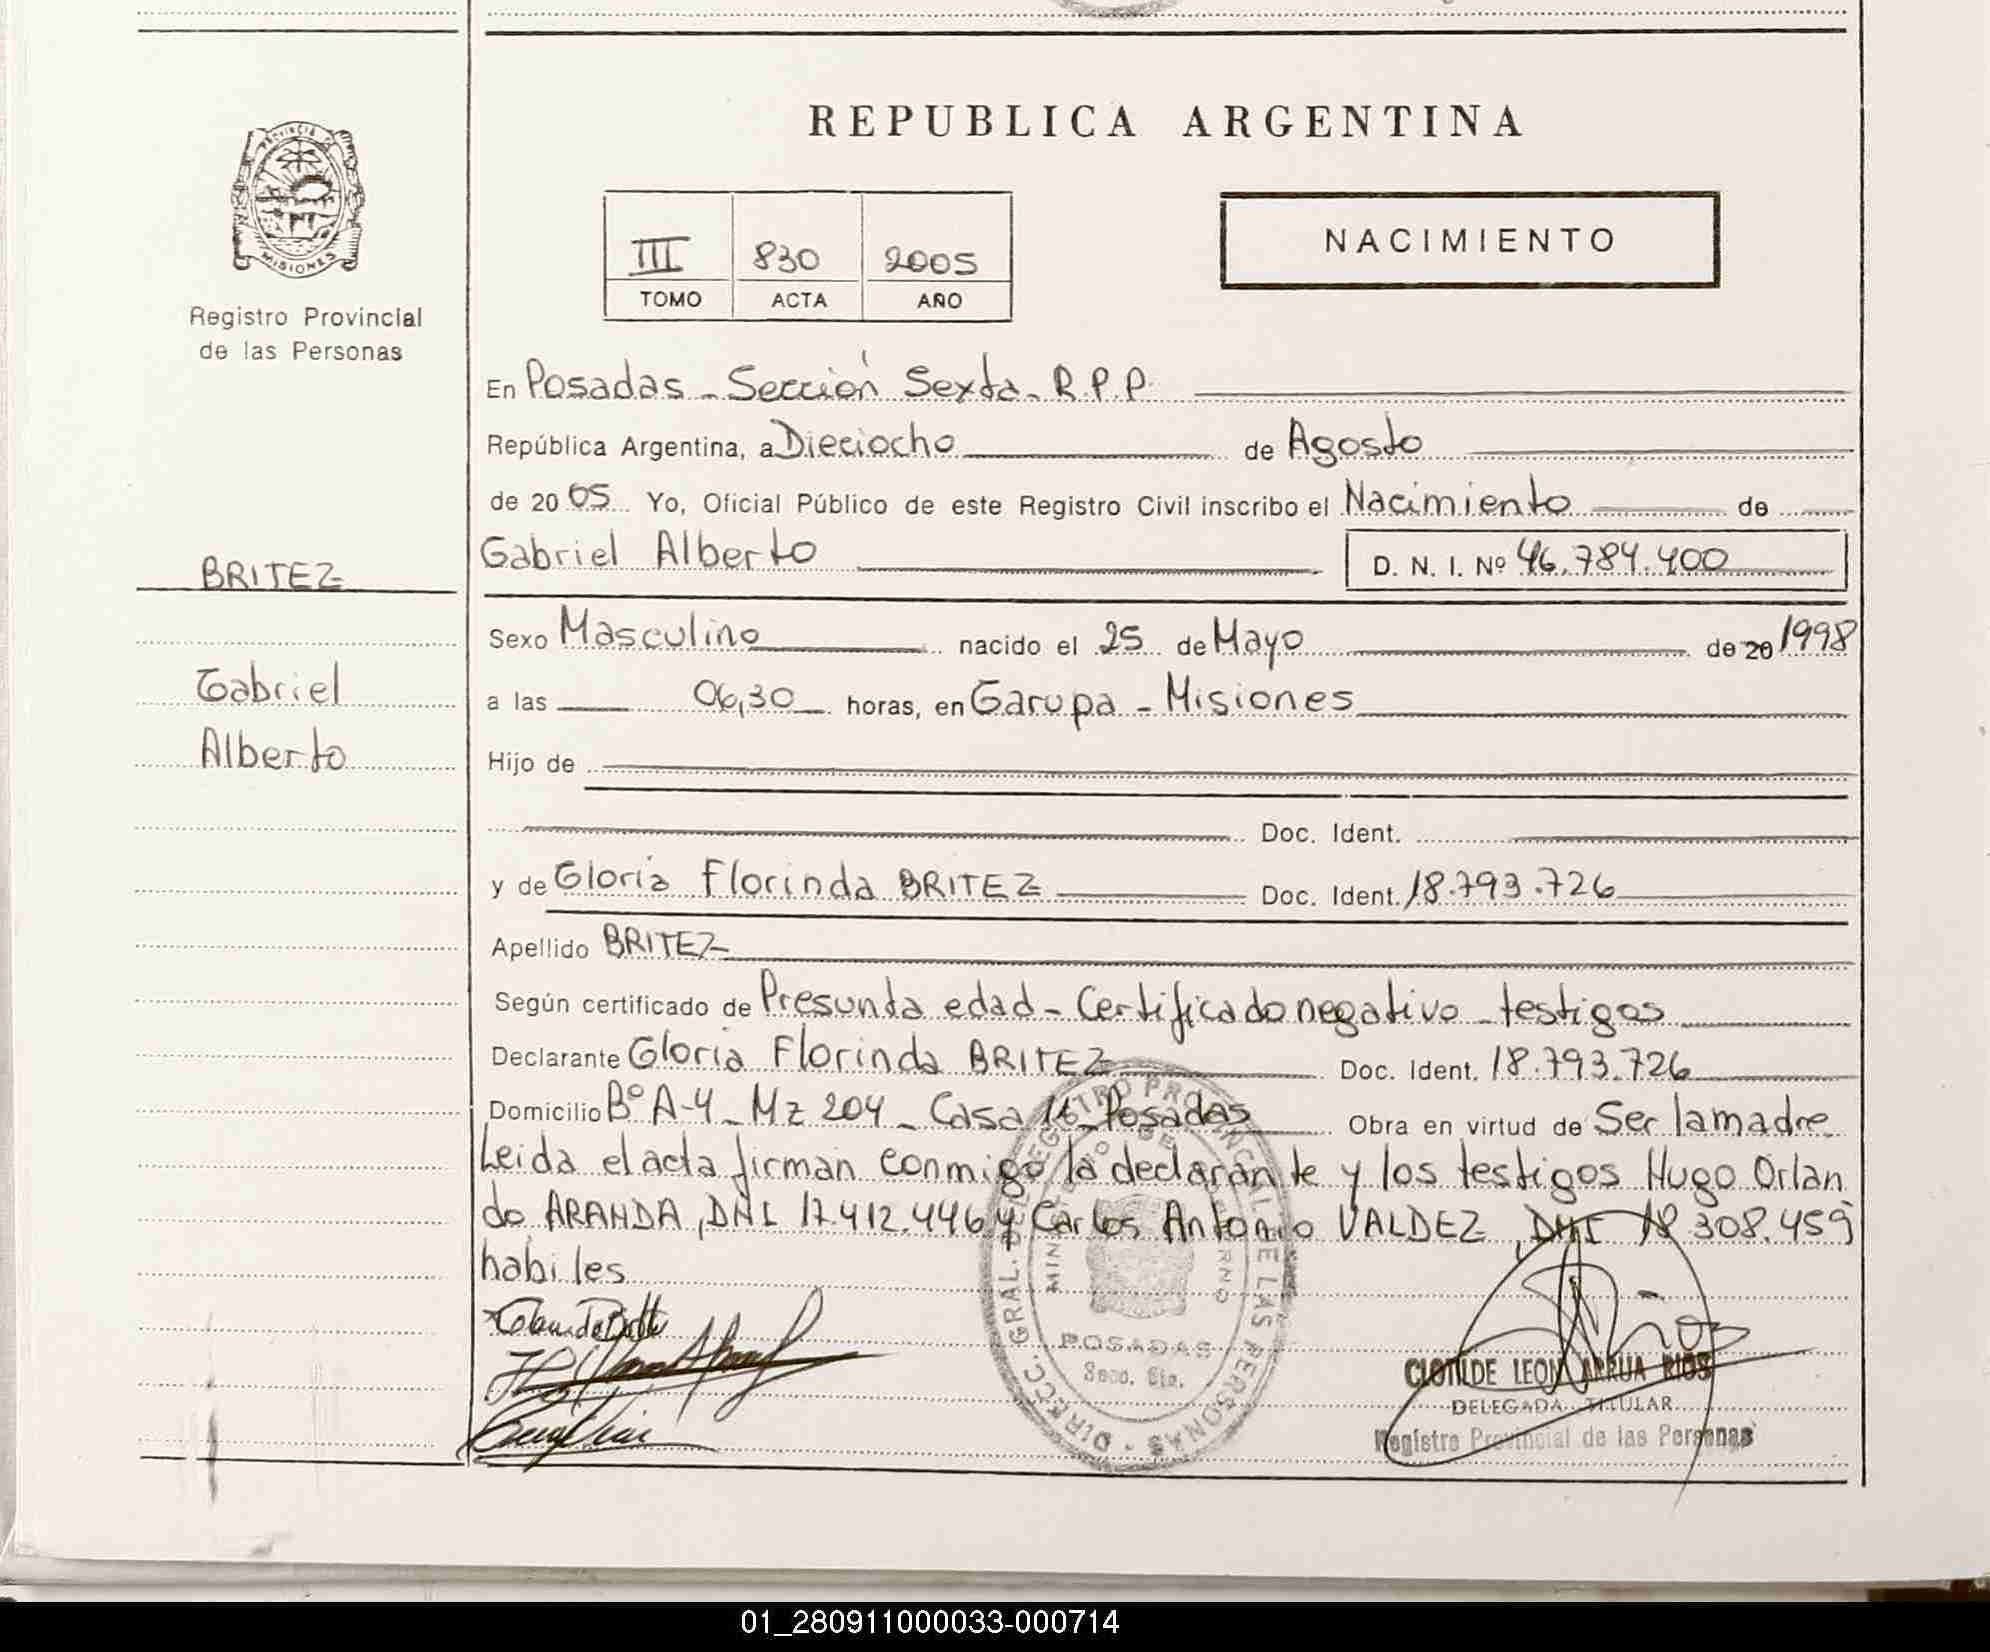 REPUBLICA ARGENTINA
PROVINCIA DE
MISIONES
Registro Provincial
de las Personas
III 830 2005
TOMO ACTA AÑO
NACIMIENTO
En Posadas - Sección Sexta - R.P.P.
República Argentina, a Dieciocho de Agosto
de 20 05 Yo, Oficial Público de este Registro Civil inscribo el Nacimiento de
BRITEZ
Gabriel Alberto D. N. I. Nº 46.784.400
Sexo Masculino nacido el 25 de Mayo de 20 1998
Gabriel
a las 06,30 horas, en Garupa - Misiones
Alberto
Hijo de
Doc. Ident.
y de Gloria Florinda BRITEZ Doc. Ident. 18.793.726
Apellido BRITEZ
Según certificado de Presunta edad - Certificado negativo - testigos
Declarante Gloria Florinda BRITEZ Doc. Ident. 18.793.726
Domicilio Bº A-4 - Mz 204 - Casa 16 - Posadas Obra en virtud de Ser la madre
Leida el acta firman conmigo la declarante y los testigos Hugo Orlan
do ARANDA, DNI 17.412.446 y Carlos Antonio VALDEZ, DNI 18.308.459
habiles
DIRECC. GRAL. DEL REGISTRO PROVINCIAL DE LAS PERSONAS
MINISTERIO DE GOBIERNO
POSADAS
Secc. 6ta.
CLOTILDE LEON ARRUA RIOS
DELEGADA TITULAR
Registro Provincial de las Personas
01_280911000033-000714